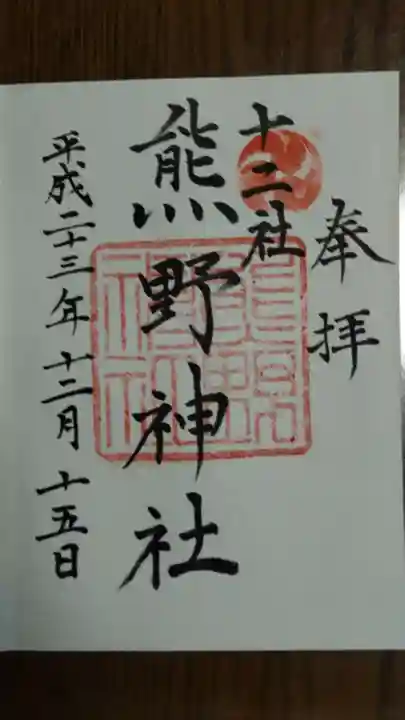 奉拝
十二社
熊野神社
平成二十三年十二月十五日